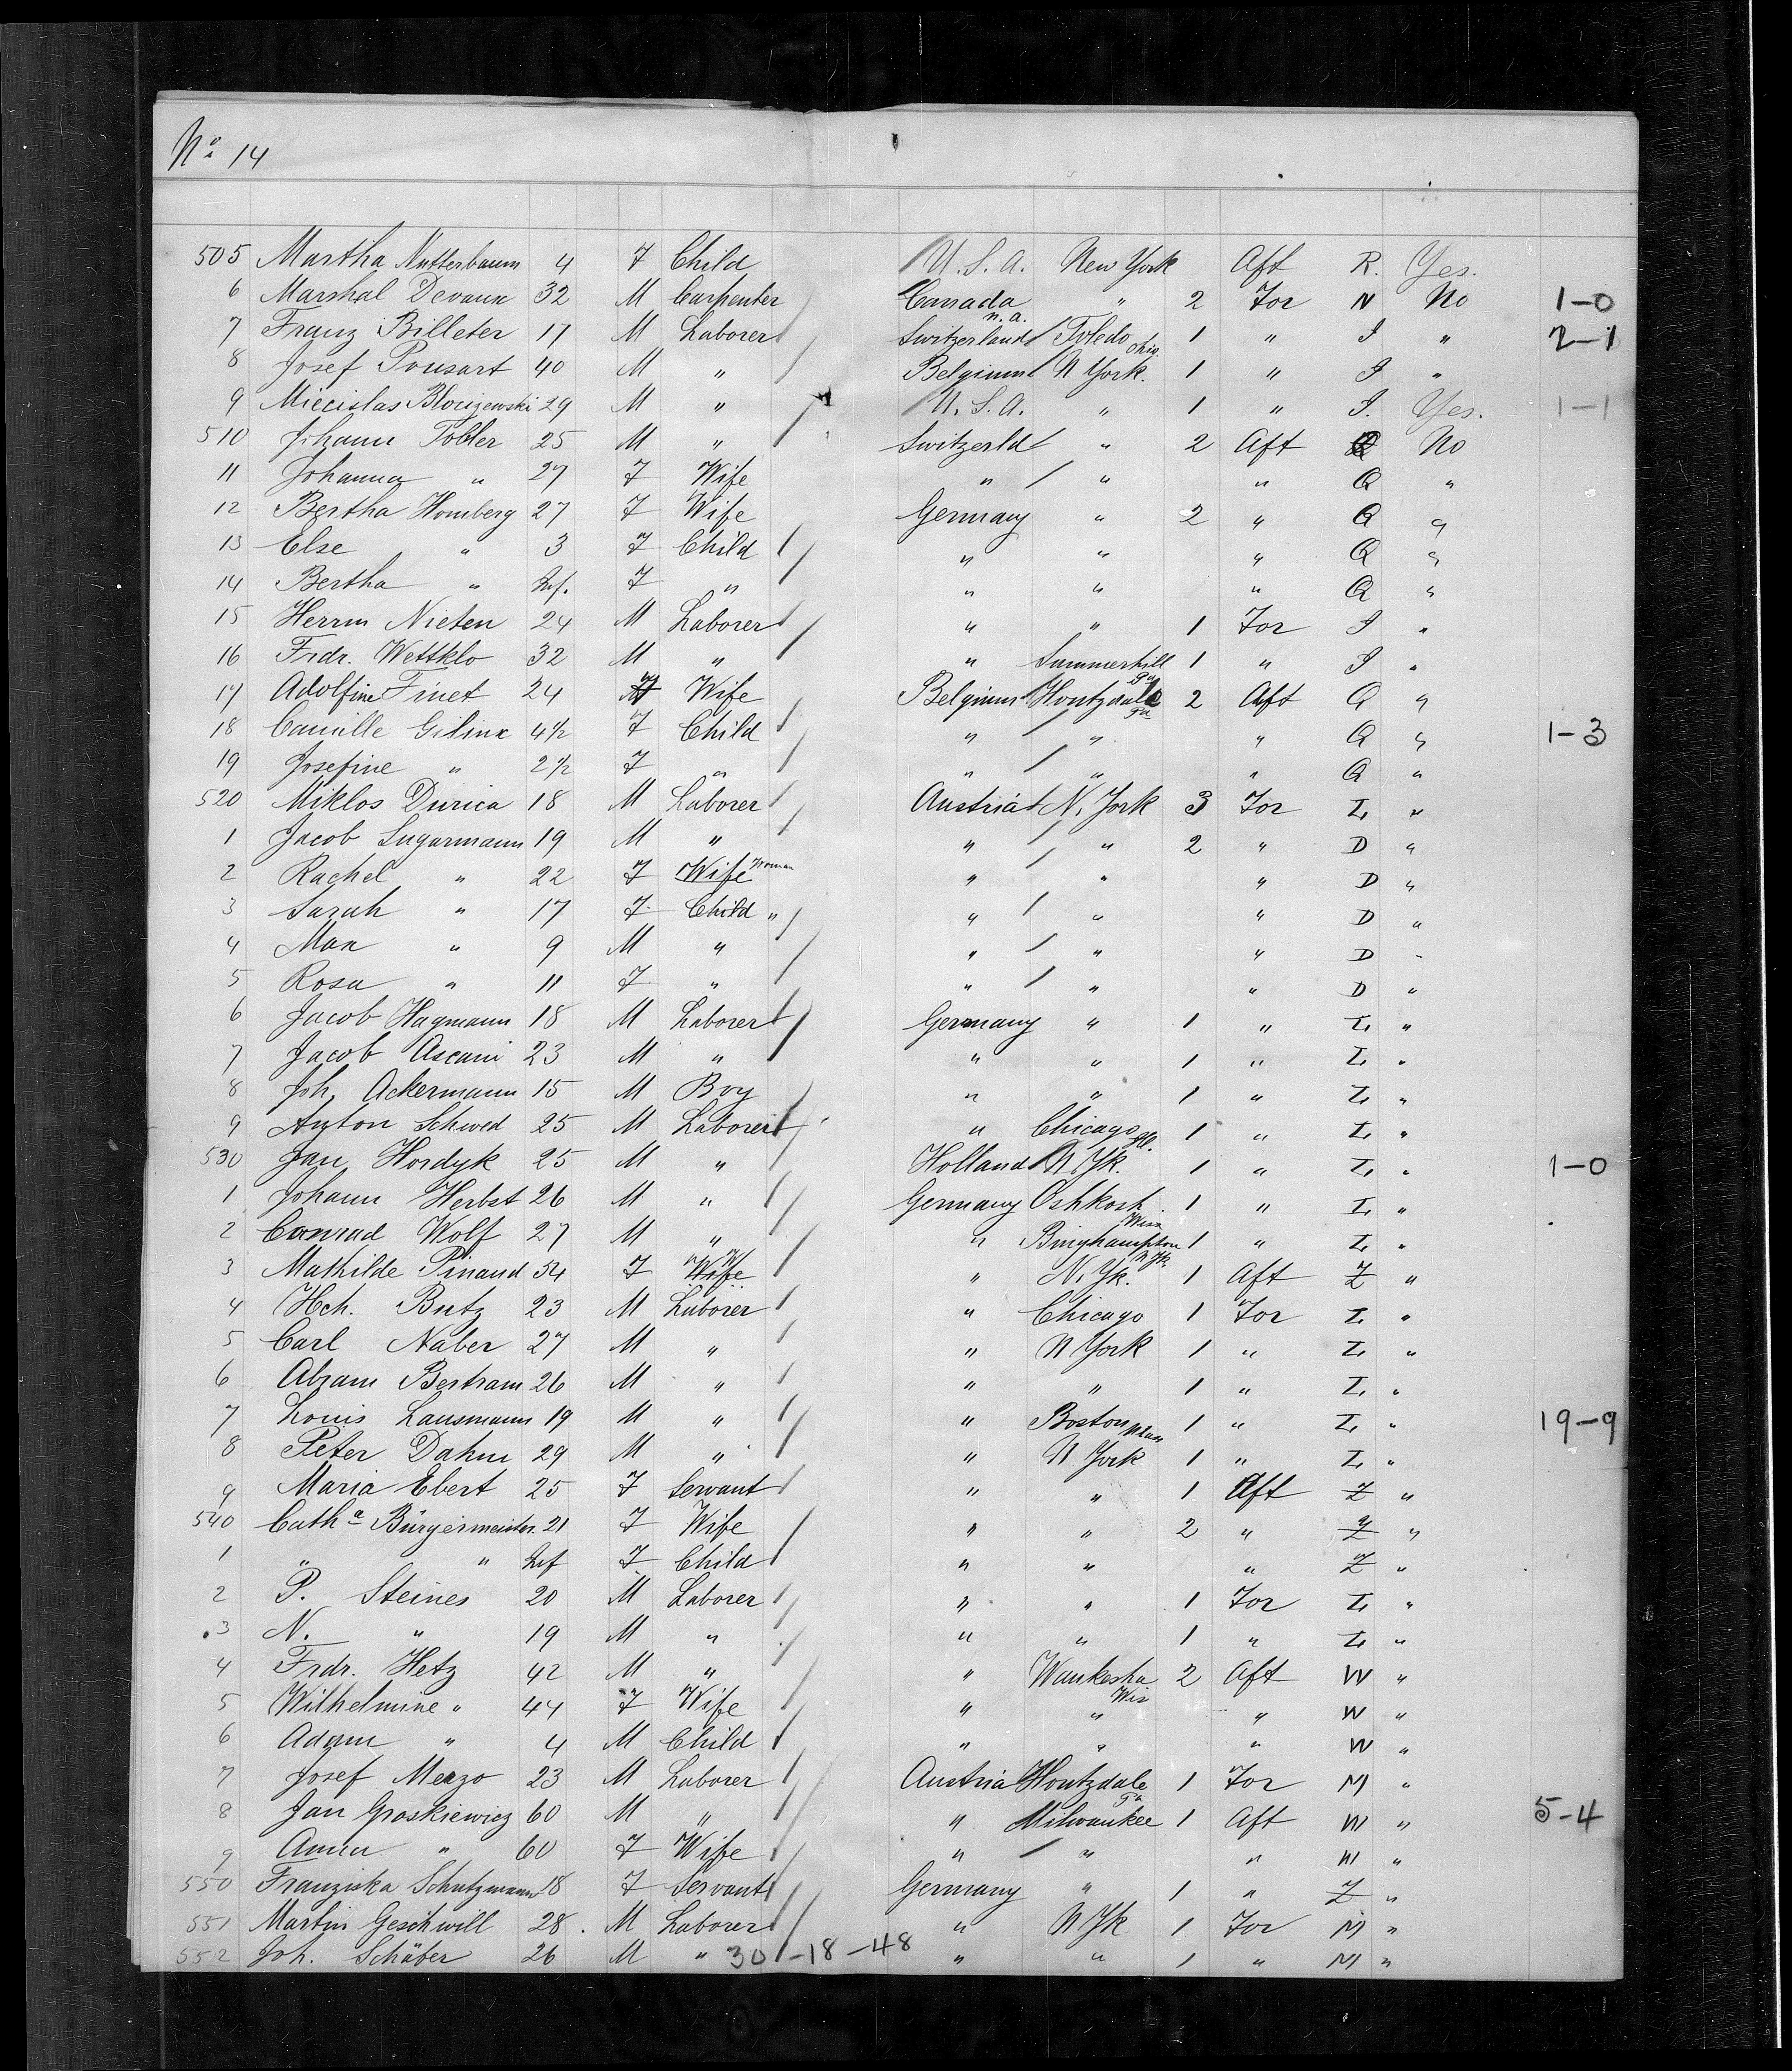 No 14
505 Martha Nutterbaum 4 F Child U.S.A. New York Aft R. Yes.
6 Marshal Devaux 32 M Carpenter Canada n.a. " 2 For N No 1-0
7 Franz Billeter 17 M Laborer Switzerland Toledo Ohio 1 " I " 2-1
8 Josef Pousart 40 M " Belgium N York. 1 " I "
9 Miecislas 29 M " U.S.A. " 1 " I. Yes. 1-1
510 Johann Tobler 25 M " Switzerld " 2 Aft Q No
11 Johanna " 27 F Wife " " " Q "
12 Bertha Homberg 27 F Wife Germany " 2 " Q "
13 Else " 3 F Child " " " Q "
14 Bertha " Inf. F " " " " Q "
15 Herm Nieten 24 M Laborer " " 1 For I "
16 Frdr. Wettklo 32 M " " Summerhill Pa 1 " I "
17 Adolfine Finet 24 F Wife Belgium Houtzdale Pa 2 Aft Q "
18 Camille Gilinx 4 1/2 F Child " " " Q " 1-3
19 Josefine " 2 1/2 F " " " " Q "
520 Miklos Durica 18 M Laborer Austria N. York 3 For L "
1 Jacob Sugarmann 19 M " " " 2 " D "
2 Rachel " 22 F Wife Woman " " " D "
3 Sarah " 17 F Child " " " " D "
4 Max " 9 M " " " " D "
5 Rosa " 11 F " " " " D "
6 Jacob Hagmann 18 M Laborer Germany " 1 " L "
7 Jacob Ascani 23 M " " " 1 " L "
8 Joh. Ackermann 15 M Boy " " 1 " L "
9 Anton Schwed 25 M Laborer " Chicago Ill. 1 " L "
530 Jan Hordyk 25 M " Holland N.Yk. 1 " L " 1-0
1 Johann Herbst 26 M " Germany Oshkosh Wisn 1 " L "
2 Conrad Wolf 27 M " " Binghampton N.Yk 1 " L "
3 Mathilde Pinaud 54 F Wife " N.Yk. 1 Aft Z "
4 Hch. Butz 23 M Laborer " Chicago 1 For L "
5 Carl Naber 27 M " " N York 1 " L "
6 Abram Bertram 26 M " " " 1 " L "
7 Louis Lansmann 19 M " " Boston Mass 1 " L " 19-9
8 Peter Dahm 29 M " " N York 1 " L "
9 Maria Ebert 25 F Servant " " 1 Aft Z "
540 Catha Bürgermeister 21 F Wife " " 2 " Z "
1 " " Inf F Child " " " Z "
2 P. Steines 20 M Laborer " " 1 For L "
3 N. " 19 M " " " 1 " L "
4 Frdr. Hetz 42 M " " Waukesha Wis 2 Aft W "
5 Wilhelmine " 44 F Wife " " " W "
6 Adam " 4 M Child " " " W "
7 Josef Mezzo 23 M Laborer Austria Houtzdale Pa 1 For M "
8 Jan Groskiewicz 60 M " " Milwaukee 1 Aft W " 5-4
9 Anna " 60 F Wife " " " W "
550 Franziska Schutzmann 18 F Servant Germany " 1 " Z "
551 Martin Geschwill 28. M Laborer " N Yk. 1 For M "
552 Joh. Schäber 26 M " 30-18-48 " " 1 " M "